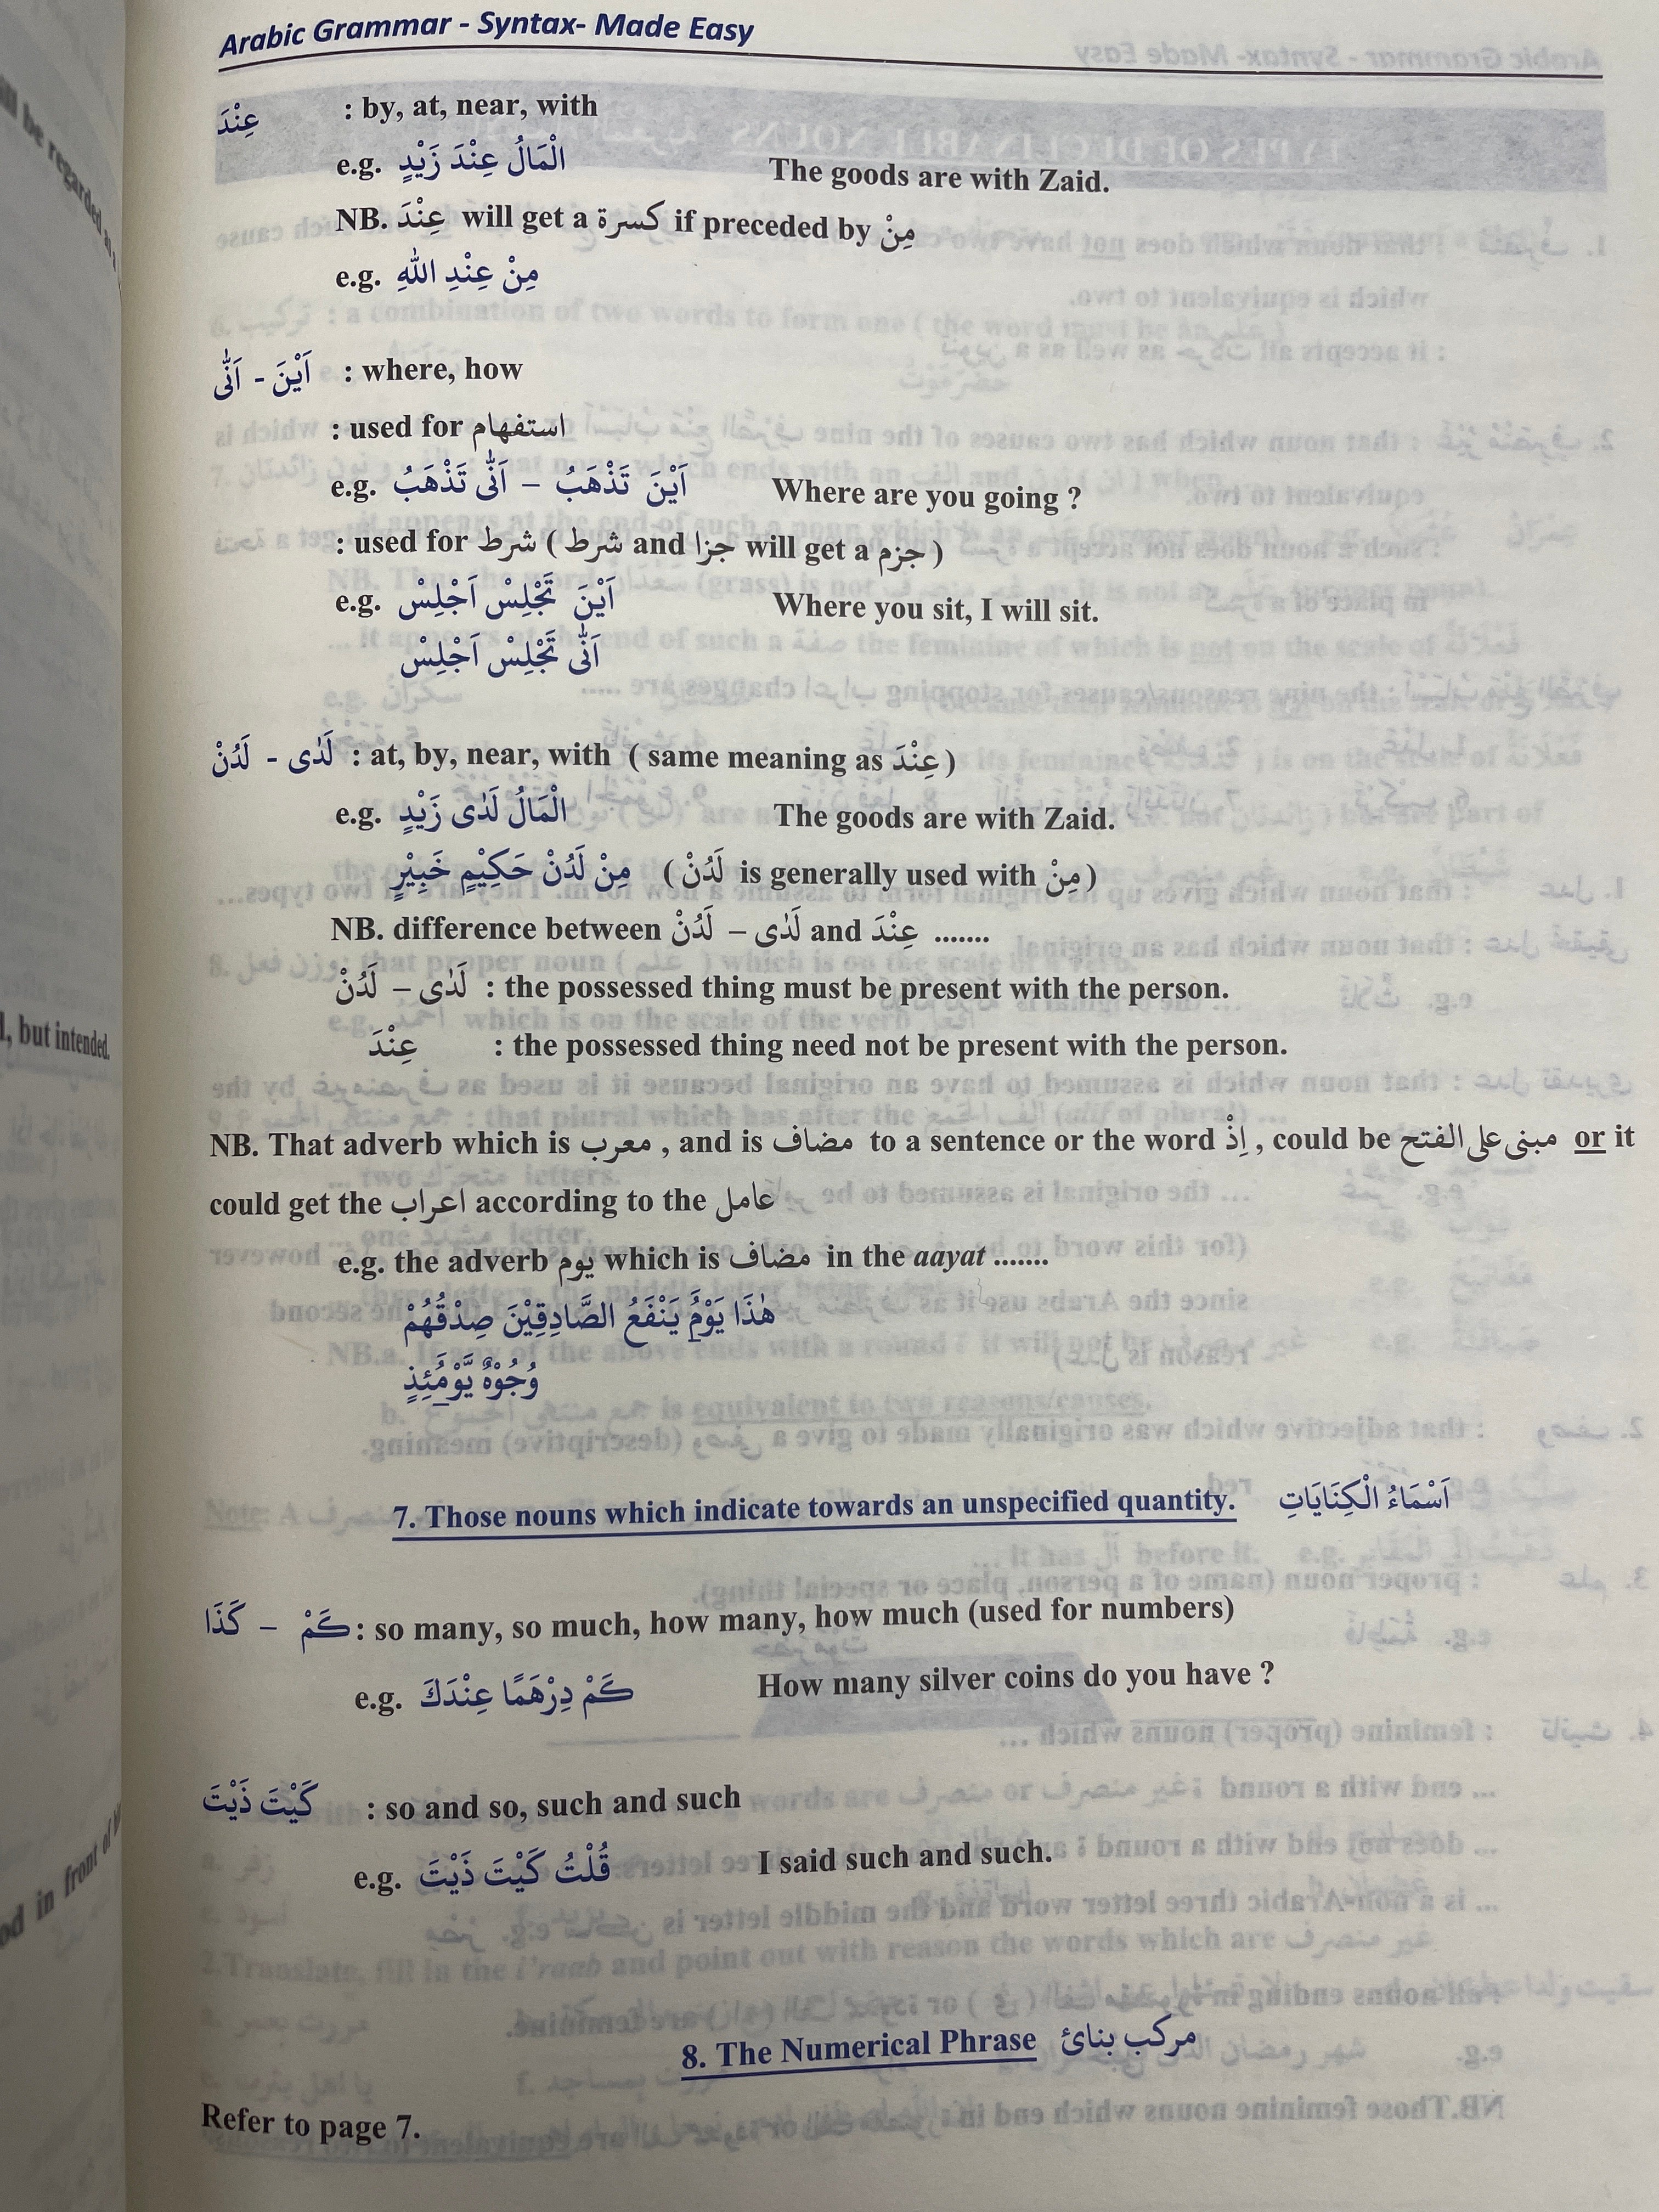 Arabic Grammar - Syntax- Made Easy
عِنْدَ : by, at, near, with
e.g. الْمَالُ عِنْدَ زَيْدٍ The goods are with Zaid.
NB. عِنْدَ will get a كسرة if preceded by مِنْ
e.g. مِنْ عِنْدِ اللّٰهِ
اَيْنَ - اَنّٰى : where, how
: used for استفهام
e.g. اَيْنَ تَذْهَبُ – اَنّٰى تَذْهَبُ Where are you going ?
: used for شرط ( شرط and جزا will get a جزم )
e.g. اَيْنَ تَجْلِسْ اَجْلِسْ Where you sit, I will sit.
اَنّٰى تَجْلِسْ اَجْلِسْ
لَدٰى - لَدُنْ : at, by, near, with ( same meaning as عِنْدَ )
e.g. الْمَالُ لَدٰى زَيْدٍ The goods are with Zaid.
مِنْ لَدُنْ حَكِيْمٍ خَبِيْرٍ ( لَدُنْ is generally used with مِنْ )
NB. difference between لَدٰى – لَدُنْ and عِنْدَ .......
لَدٰى – لَدُنْ : the possessed thing must be present with the person.
عِنْدَ : the possessed thing need not be present with the person.
NB. That adverb which is معرب , and is مضاف to a sentence or the word إِذْ , could be مبنى على الفتح or it
could get the اعراب according to the عامل
e.g. the adverb يوم which is مضاف in the aayat .......
هٰذَا يَوْمَُ يَنْفَعُ الصَّادِقِيْنَ صِدْقُهُمْ
وُجُوْهٌ يَّوْمَُئِذٍ
7. Those nouns which indicate towards an unspecified quantity. اَسْمَاءُ الْكِنَايَاتِ
كَمْ – كَذَا : so many, so much, how many, how much (used for numbers)
e.g. كَمْ دِرْهَمًا عِنْدَكَ How many silver coins do you have ?
كَيْتَ ذَيْتَ : so and so, such and such
e.g. قُلْتُ كَيْتَ ذَيْتَ I said such and such.
8. The Numerical Phrase مركب بنائ
Refer to page 7.